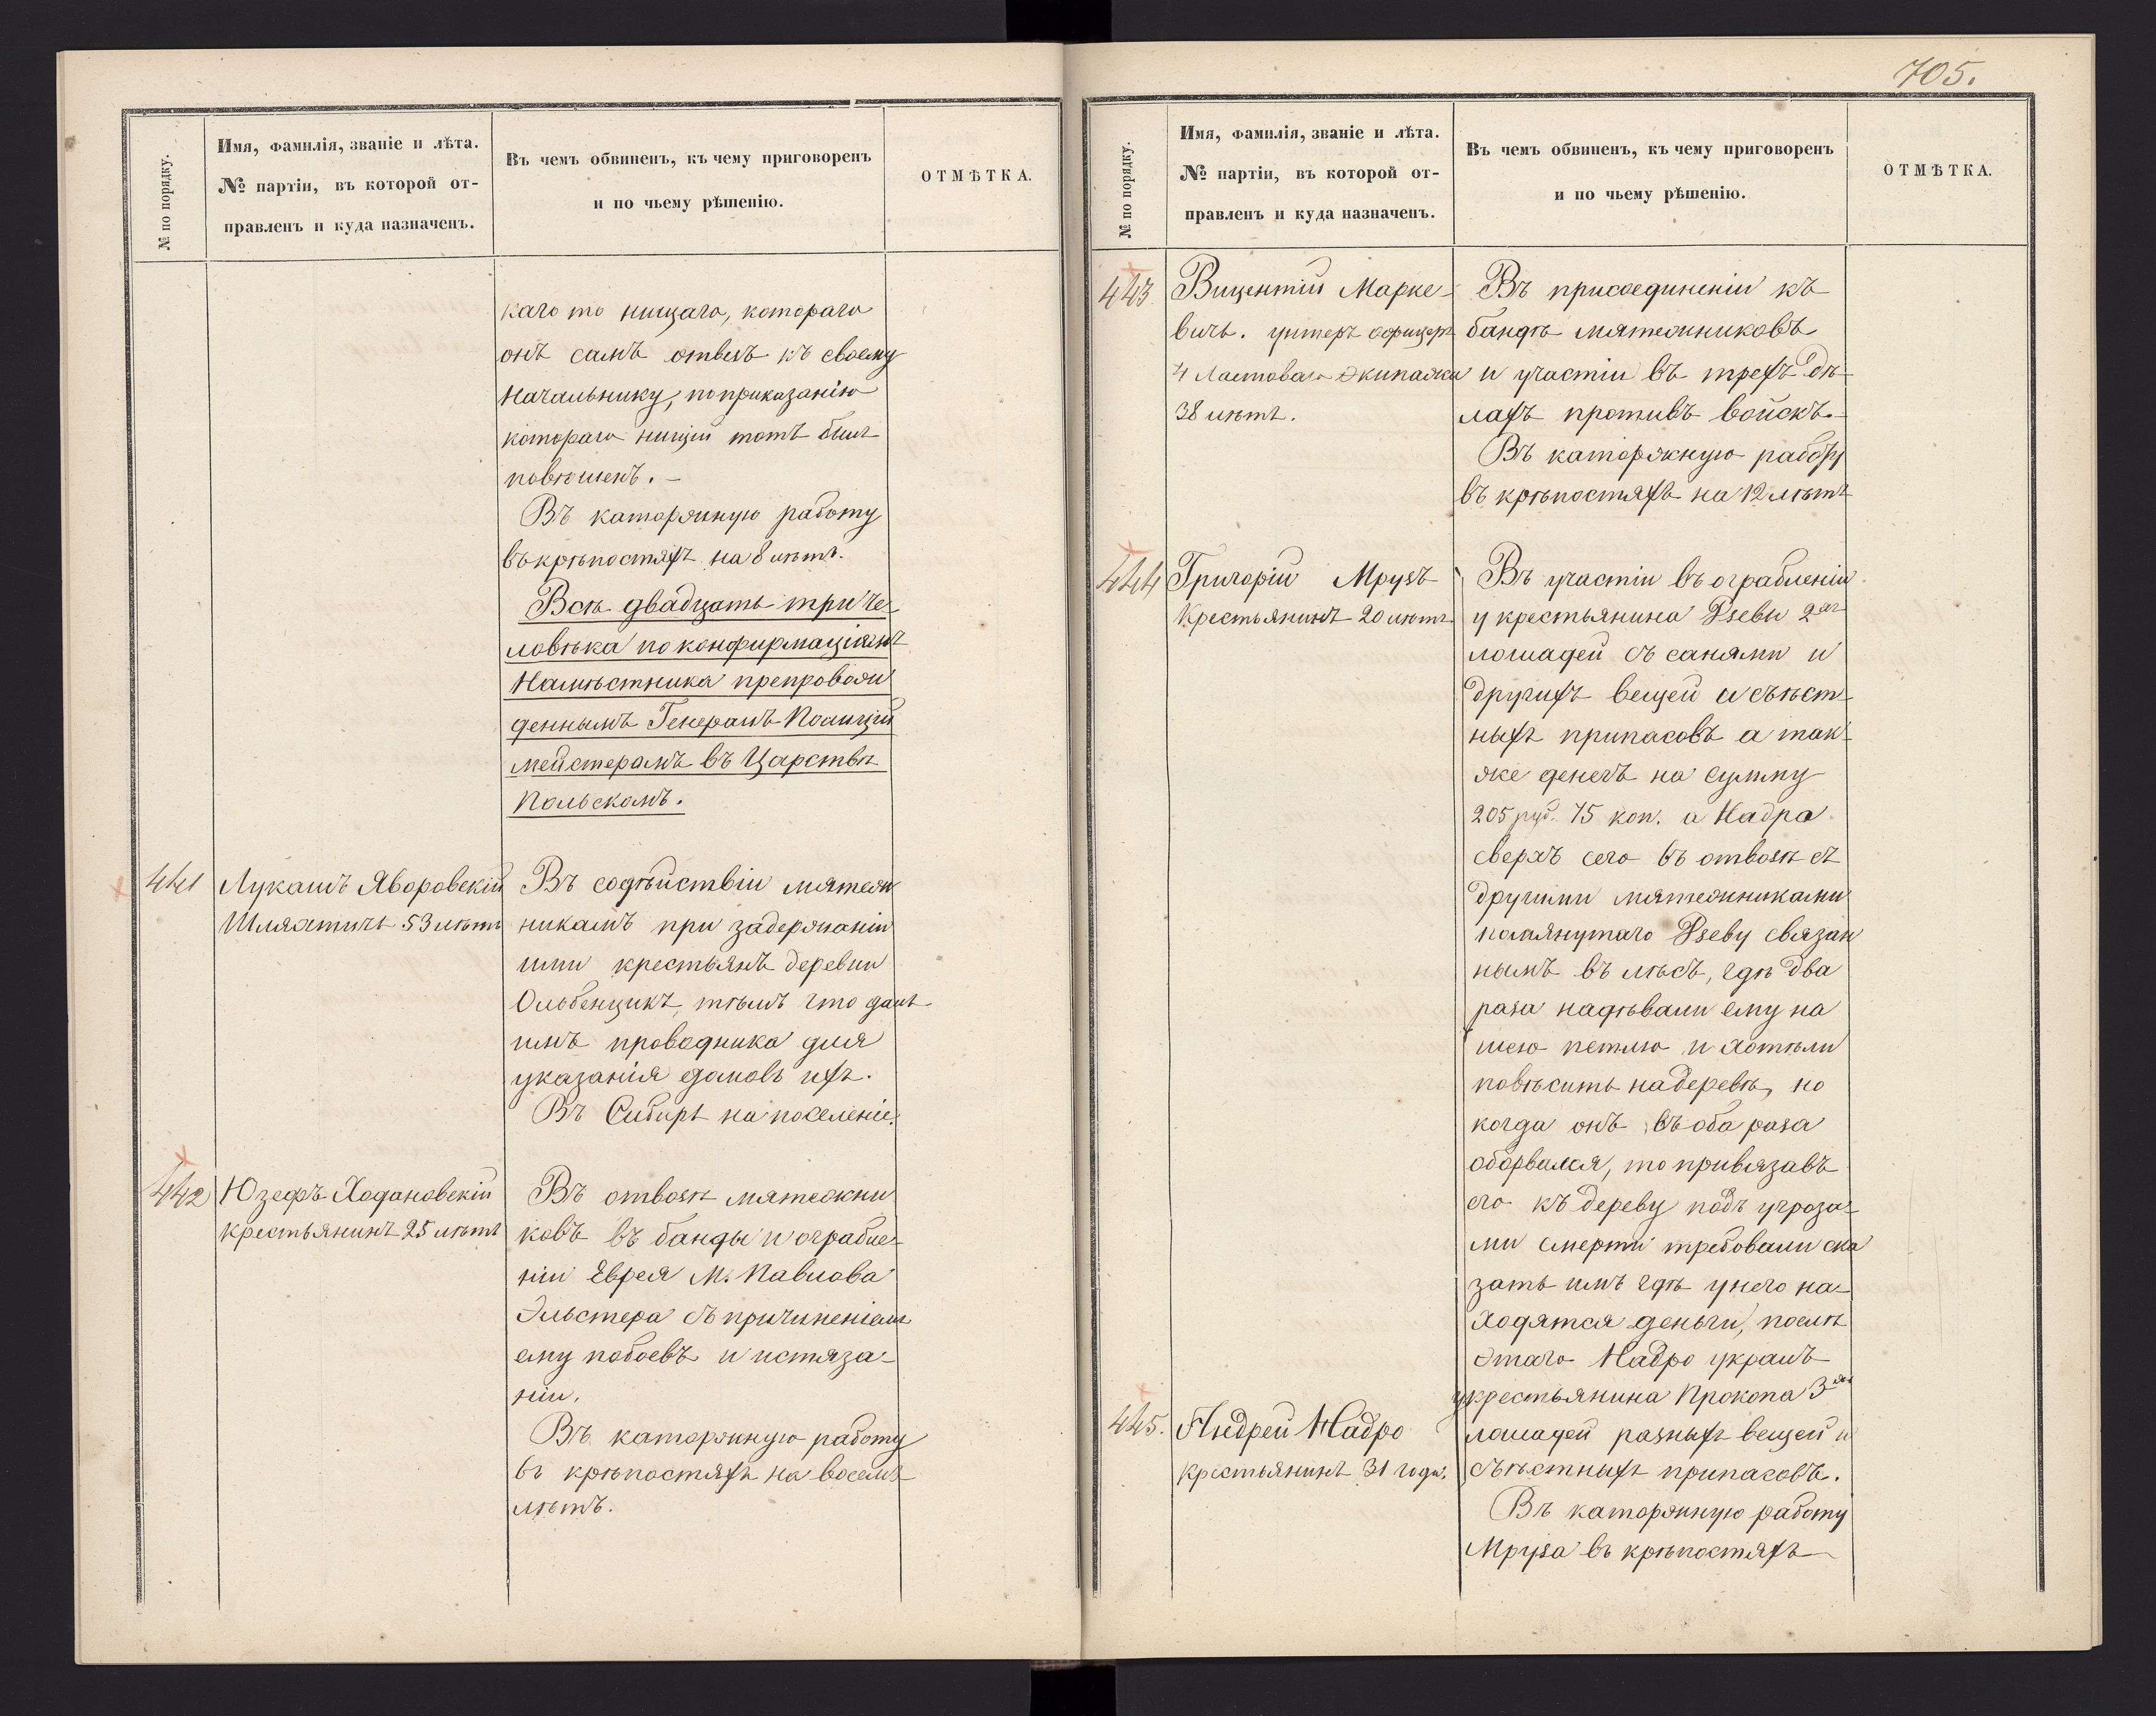 705.
№ по порядку.
Имя, фамилія, званіе и лѣта.
№ партіи, въ которой от-
правленъ и куда назначенъ.
Въ чемъ обвиненъ, къ чему приговоренъ
и по чьему рѣшенію.
ОТМѢТКА.
каго то нищаго, котораго
онъ самъ отвезъ къ своему
Начальнику, по приказанію
котораго нищій тотъ былъ
повѣшенъ. –
Въ каторжную работу
въ крѣпостяхъ на 8 лѣтъ.
Всѣ двадцать три че-
ловѣка по конфирмаціямъ
Намѣстника препровож
деннымъ Генералъ-Полицій
мейстеромъ въ Царствѣ
Польскомъ.
441
Лукашъ Яворовскій
Шляхтичъ 53 лѣтъ
Въ содѣйствіи мятеж
никамъ при задержаніи
ими крестьянъ деревни
Ольбенцикъ, тѣмъ что далъ
имъ проводника для
указанія домовъ ихъ.
Въ Сибирь на поселеніе.
442
Юзефъ Ходановскій
крестьянинъ 25 лѣтъ
Въ отвозѣ мятежни
ковъ въ банды и ограбле-
ніи Еврея М. Павлова
Эльстера съ причиненіемъ
ему побоевъ и истяза-
ніи.
Въ каторжную работу
въ крѣпостяхъ на восемь
лѣтъ.
№ по порядку.
Имя, фамилія, званіе и лѣта.
№ партіи, въ которой от-
правленъ и куда назначенъ.
Въ чемъ обвиненъ, къ чему приговоренъ
и по чьему рѣшенію.
ОТМѢТКА.
443
Вицентій Марке-
вичъ. унтеръ офицеръ
4 Ластоваго Экипажа
38 лѣтъ.
Въ присоединеніи къ
бандѣ мятежниковъ
и участіи въ трехъ дѣ-
лахъ противъ войскъ.
Въ каторжную работу
въ крѣпостяхъ на 12 лѣтъ
444
Григорій Мрузъ
Крестьянинъ 20 лѣтъ
Въ участіи въ ограбленіи
у крестьянина Рзебы 2хъ
лошадей съ санями и
другихъ вещей и съѣст-
ныхъ припасовъ а так-
же денегъ на сумму
205 руб. 75 коп. а Надра
сверхъ сего въ отвозѣ съ
другими мятежниками
помянутаго Рзебу связан
нымъ въ лѣсъ, гдѣ два
раза надѣвали ему на
шею петлю и хотѣли
повѣсить на деревѣ, но
когда онъ въ оба раза
оборвался, то привязавъ
его къ дереву подъ угроза-
ми смерти требовали ска
зать имъ гдѣ у него на-
ходятся деньги, послѣ
этаго Надро укралъ
у крестьянина Прокопа 3хъ
лошадей разныхъ вещей и
съѣстныхъ припасовъ.
Въ каторжную работу
Мруза въ крѣпостяхъ
445.
Андрей Надро
Крестьянинъ 31 года.